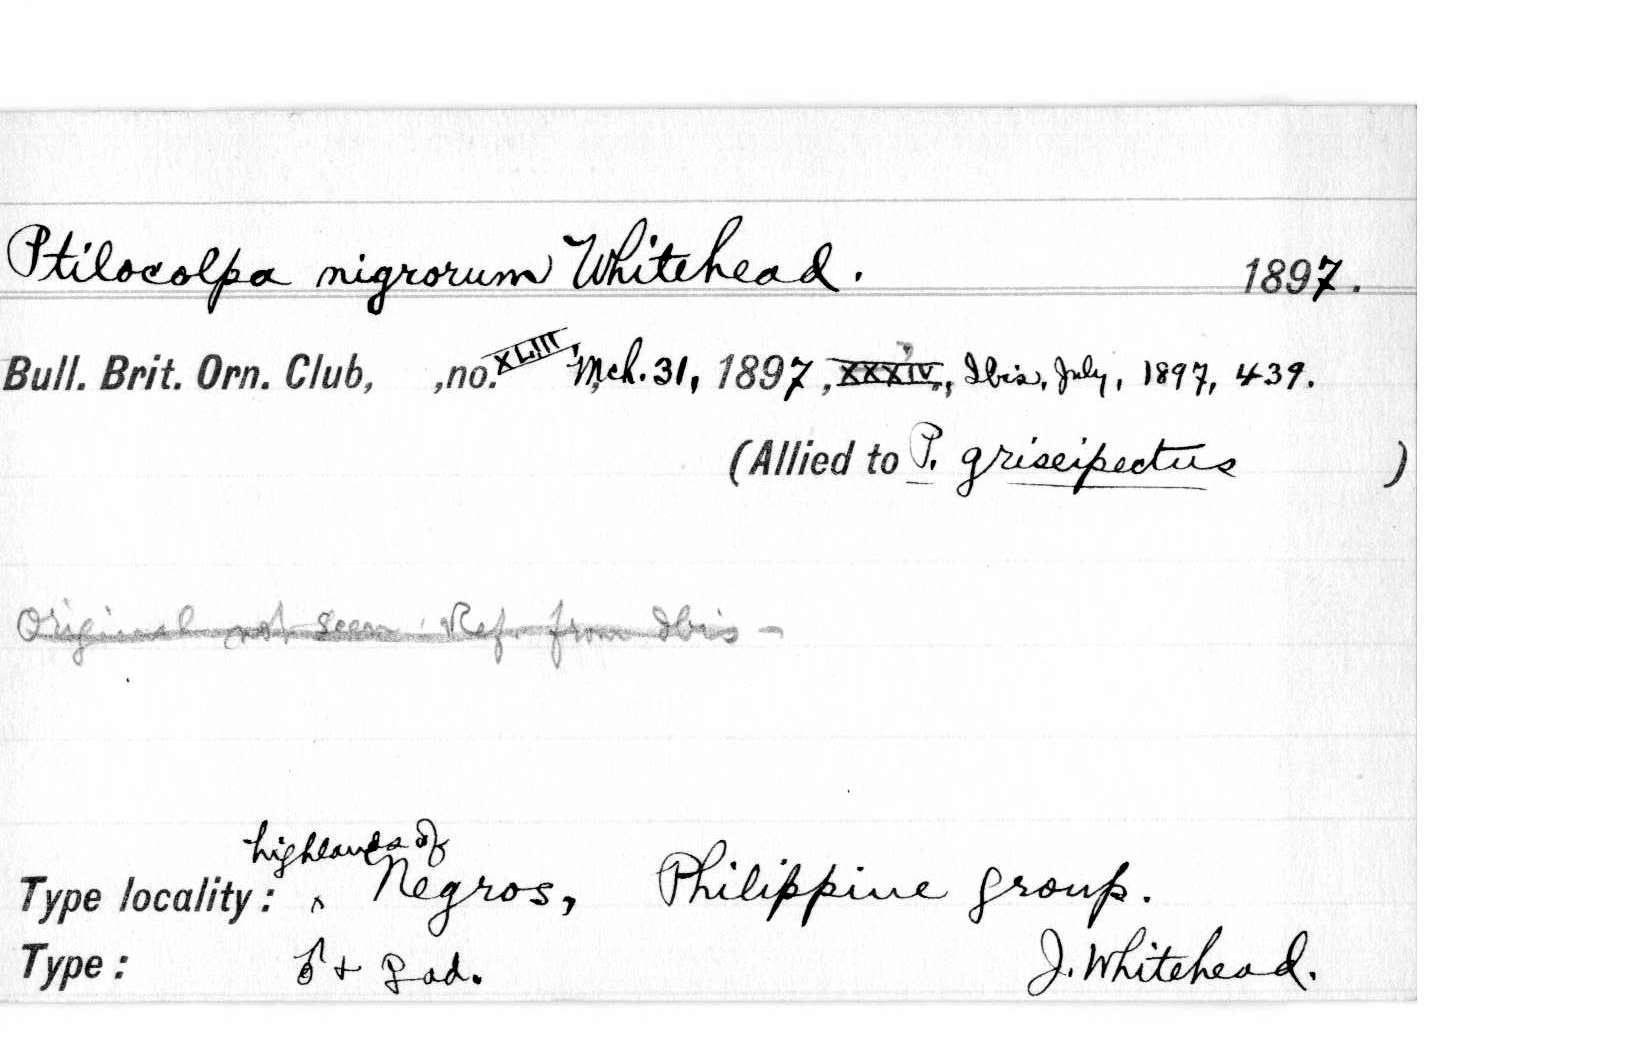 Ptilocolpa nigrorum Whitehead. 1897.
Bull. Brit. Orn. Club, ,no. XLIII, Mch. 31, 1897, XXXIV, Ibis, July, 1897, 439.
(Allied to P. griseipectus )
Original not seen. Ref. from Ibis -
highlands of
Type locality: ^ Negros, Philippine group.
Type: ♂ + ♀ ad. J. Whitehead.